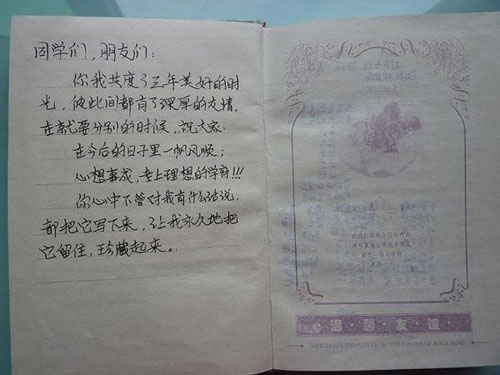 同学们，朋友们：
你我共度了三年美好的时
光，彼此间都有了深厚的友情，
在就要分别的时候，祝大家：
在今后的日子里一帆风顺；
心想事成，考上理想的学府!!!
你心中不管对我有什么话说，
都把它写下来，让我永久地把
它留住，珍藏起来。
温·图·友·谊